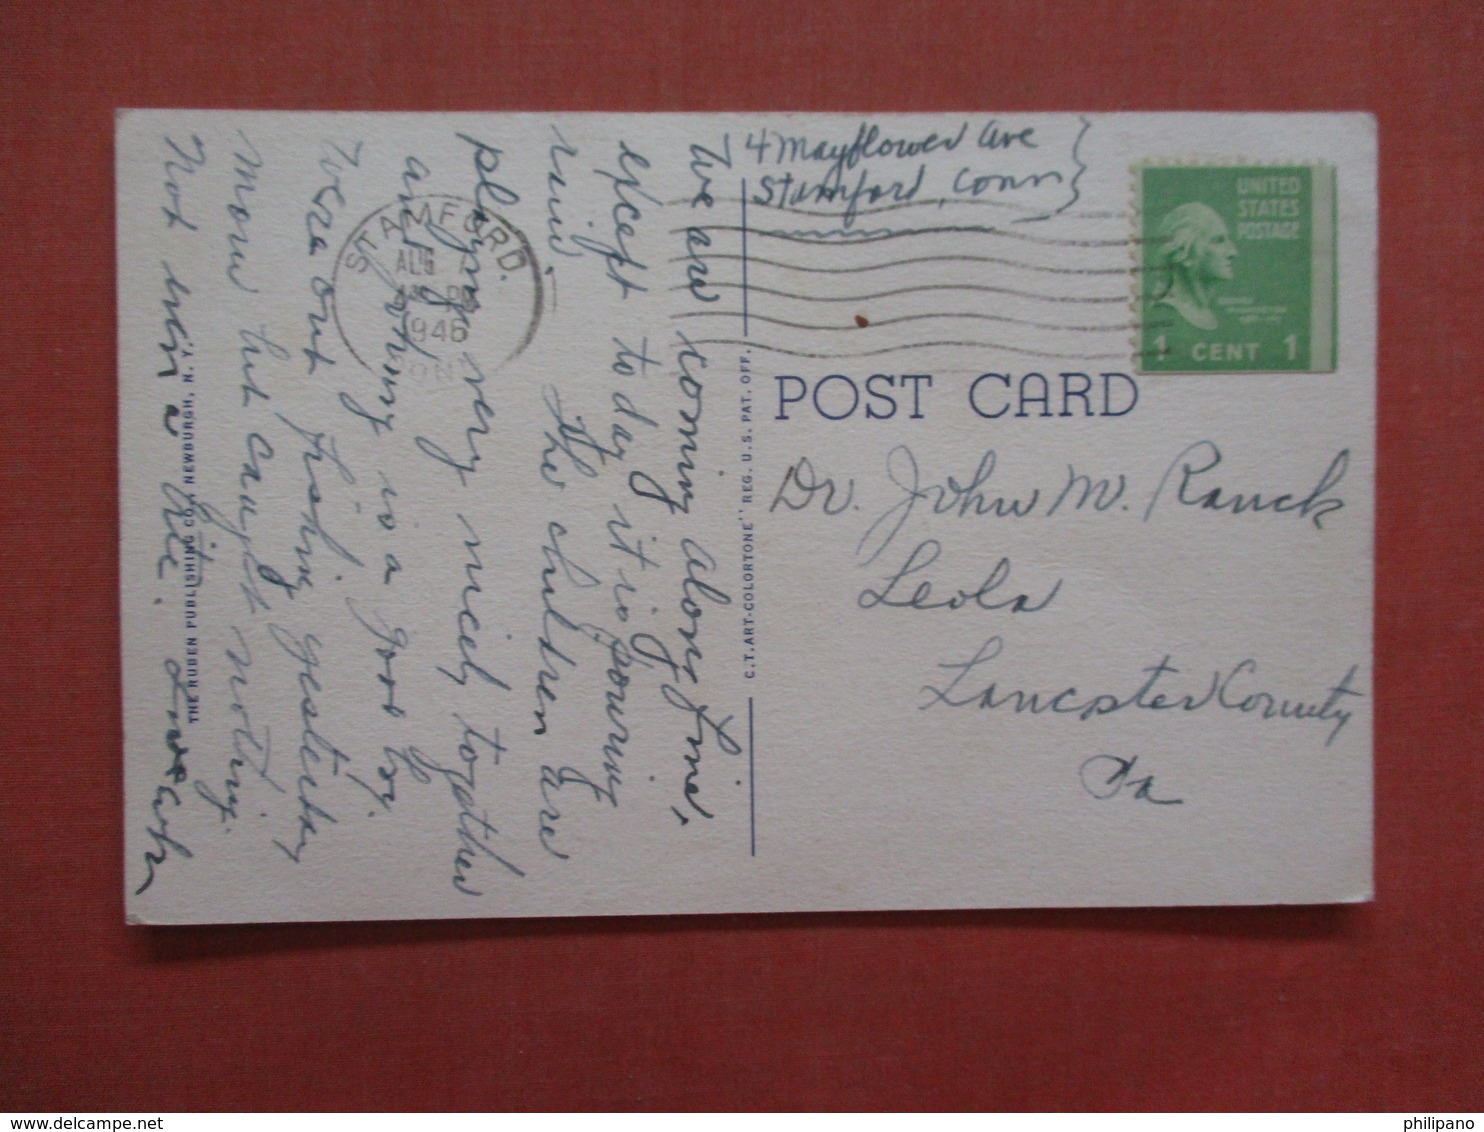 4 Mayflower Ave
Stamford, Conn
We are coming along fine,
except to day it is pouring
rain. The children are
playing very nicely together
and Johnny is a good boy.
Were out fishing yesterday
morn but caught nothing.
Not even a bite.
STAMFORD.
AUG
PM
1946
UNITED
STATES
POSTAGE
1 CENT 1
POST CARD
Dr. John M. Ranck
Leola
Lancaster County
Pa
C.T. ART-COLORTONE" REG. U.S. PAT. OFF.
THE RUBEN PUBLISHING CO., NEWBURGH, N. Y.
delcampe.net
philipano